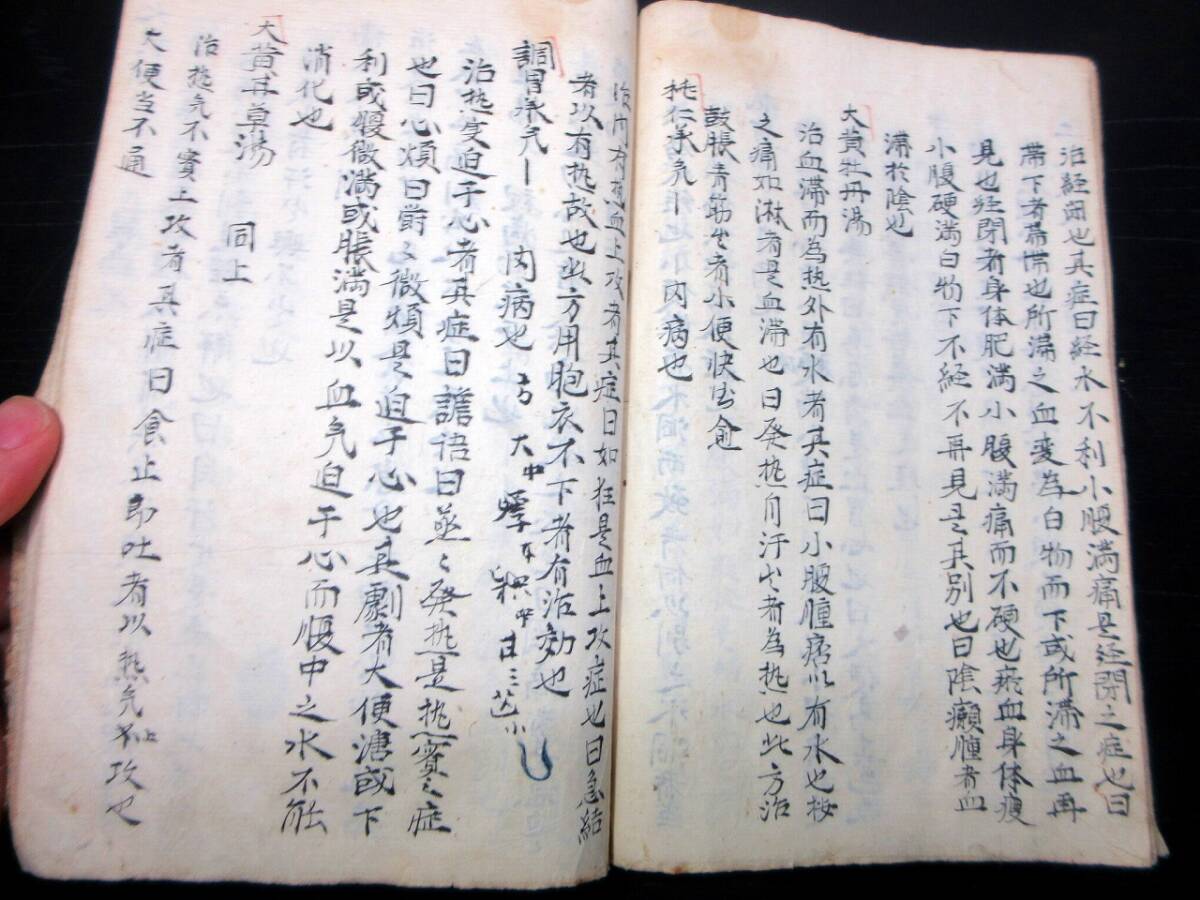 治経閉也其症曰経水不利小腹満痛是経閉之症也曰
帯下者帯滞也所滞之血変為白物而下或所滞之血再
見也経閉者身体肥満小腹満痛而不硬也瘀血身体痩
小腹硬満白物下不経不再見是其別也曰陰癩腫者血
滞於陰也
大黄牡丹湯
治血滞而為熱外有水者其症曰小腹腫痞以有水也按
之痛如淋者是血滞也曰発熱自汗出者為熱也此方治
鼓脹青筋出者小便快出愈
桃仁承気〡 内病也
治内有熱血上攻者其症曰如狂是血上攻症也曰急結
者以有熱故也此方用胞衣不下者有治効也
調胃承気〡 内病也 方 大中 芒 甘
治熱変迫于心者其症曰譫語曰蒸〻発熱是熱實之症
也曰心煩曰欝〻微煩是迫于心也其劇者大便溏或下
利或腹微満或脹満是以血気迫于心而腹中之水不能
消化也
大黄甘草湯 同上
治熱気不實上攻者其症曰食止即吐者以熱気上攻也
大便当不通